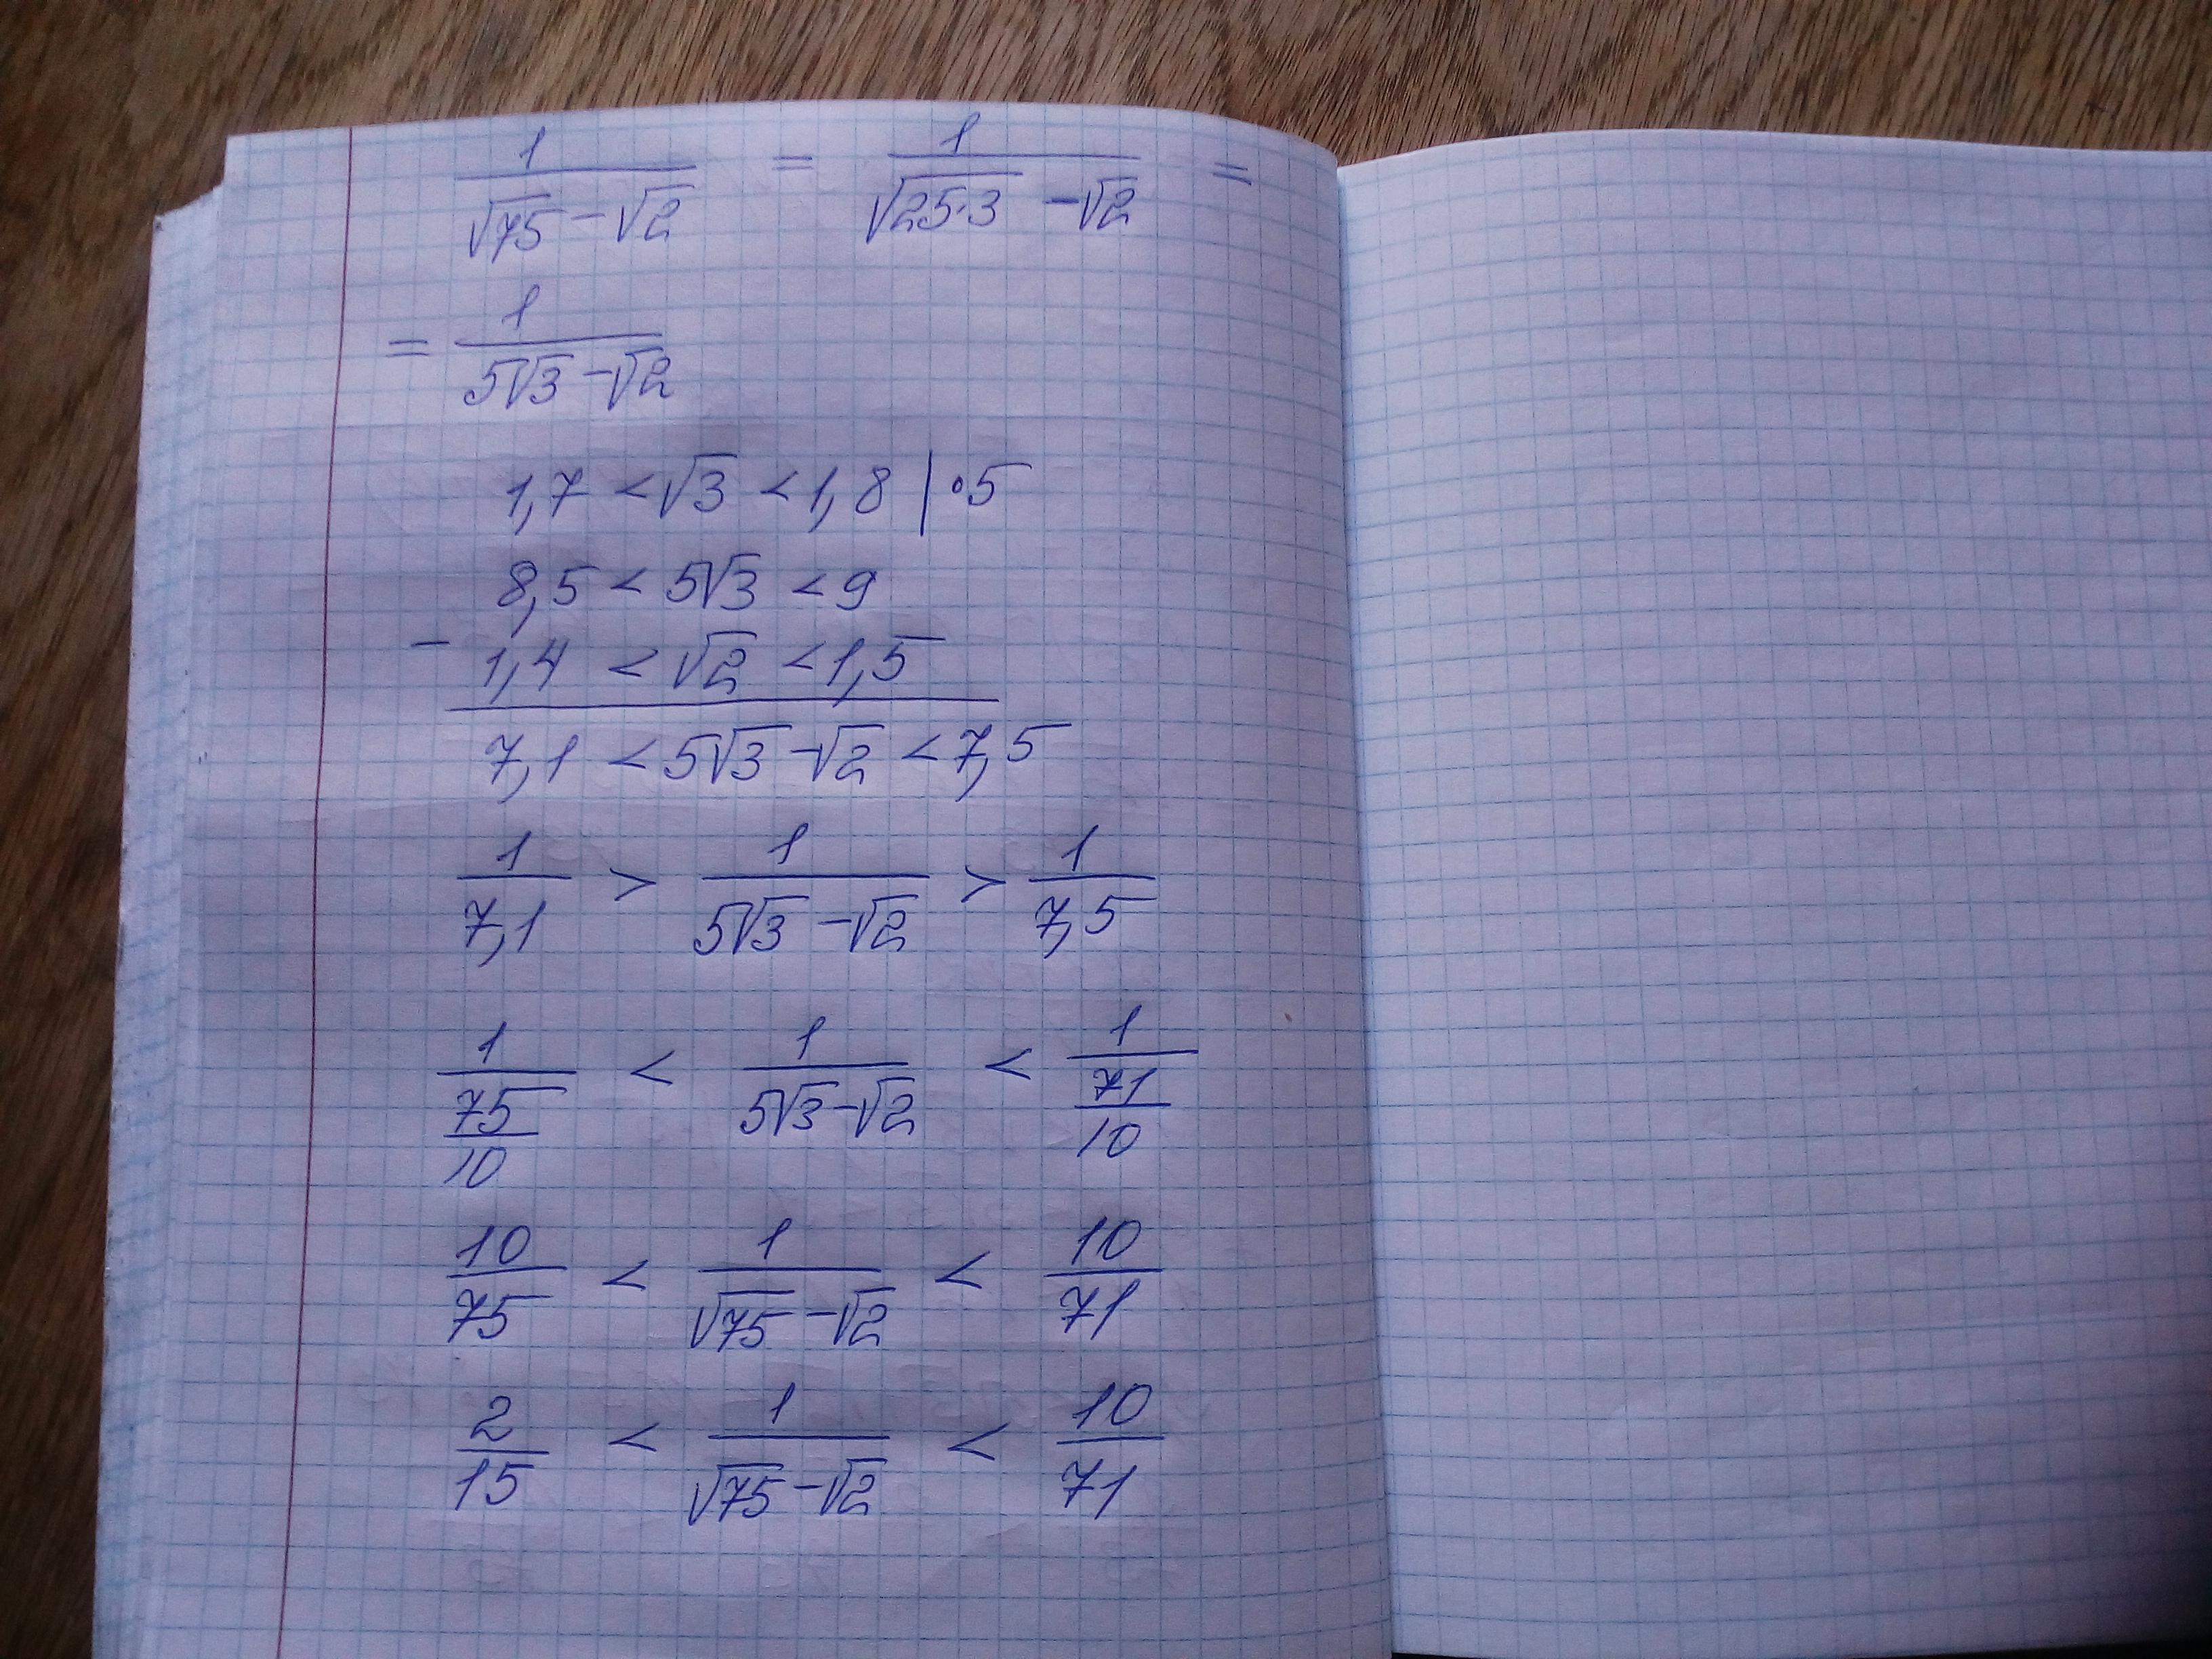 1/(√75 − √2) = 1/(√25·3 − √2) =
= 1/(5√3 − √2)
1,7 < √3 < 1,8 | · 5
8,5 < 5√3 < 9
− 1,4 < √2 < 1,5
7,1 < 5√3 − √2 < 7,5
1/7,1 > 1/(5√3 − √2) > 1/7,5
1/(75/10) < 1/(5√3 − √2) < 1/(71/10)
10/75 < 1/(√75 − √2) < 10/71
2/15 < 1/(√75 − √2) < 10/71